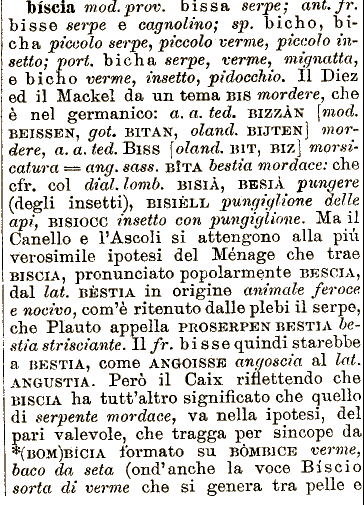 bíscia mod. prov. bissa serpe; ant. fr.
bisse serpe e cagnolino; sp. bicho, bi-
cha piccolo serpe, piccolo verme, piccolo in-
setto; port. bicha serpe, verme, mignatta,
e bicho verme, insetto, pidocchio. Il Diez
ed il Mackel da un tema BIS mordere, che
è nel germanico: a. a. ted. BIZZÀN [mod.
BEISSEN, got. BITAN, oland. BIJTEN] mor-
dere, a. a. ted. BISS [oland. BIT, BIZ] morsi-
catura = ang. sass. BÎTA bestia mordace: che
cfr. col dial. lomb. BISIÀ, BESIÀ pungere
(degli insetti), BISIÈLL pungiglione delle
api, BISIOCC insetto con pungiglione. Ma il
Canello e l'Ascoli si attengono alla piú
verosimile ipotesi del Ménage che trae
BISCIA, pronunciato popolarmente BESCIA,
dal lat. BÈSTIA in origine animale feroce
e nocivo, com'è ritenuto dalle plebi il serpe,
che Plauto appella PROSERPEN BESTIA be-
stia strisciante. Il fr. bisse quindi starebbe
a BESTIA, come ANGOISSE angoscia al lat.
ANGUSTIA. Però il Caix riflettendo che
BISCIA ha tutt'altro significato che quello
di serpente mordace, va nella ipotesi, del
pari valevole, che tragga per sincope da
*(BOM)BÍCIA formato su BÒMBICE verme,
baco da seta (ond'anche la voce Bíscio
sorta di verme che si genera tra pelle e